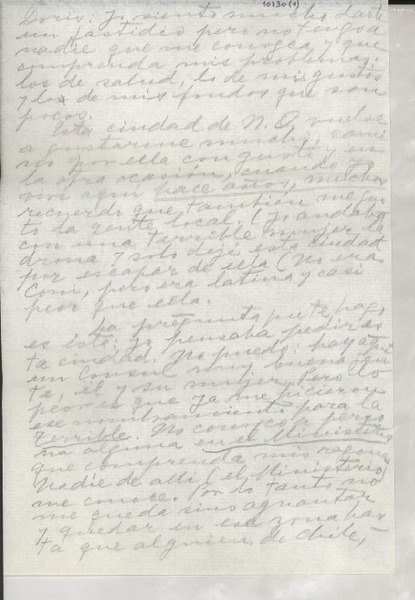 10130 (1)
Doris: Yo siento mucho darte
un fastidio pero no tengo a
nadie que me conozca y que
comprenda mis problemas,
los de salud, los de mis gustos
y los de mis fondos que son
pocos.
Esta ciudad de N. O. vuelve
a gustarme mucho; cami
no por ella con gusto y en
la otra ocasión, cuando yo
viví aquí hace años, mucho
recuerdo que también me gus
tó la gente local. (Yo andaba
con una terrible mujer la
drona y solo dejé esta ciudad
por escapar de ella (No era
Coni, pero era latina y casi
peor que ella.
La pregunta que te hago
es ésta: Yo pensaba pedir es
ta ciudad. No puedo: hay aquí
un Consul muy buena gen
te, él y su mujer. Pero lo
peor es que ya me hicieron
ese nombramiento para la
terrible. No conozco perso
na alguna en el Ministerio
que comprenda mis razones
Nadie de allí (el Ministerio)
me conoce. Por lo tanto, no
me queda sino aguantar
y quedar en esa zona has
ta que alguien de Chile,